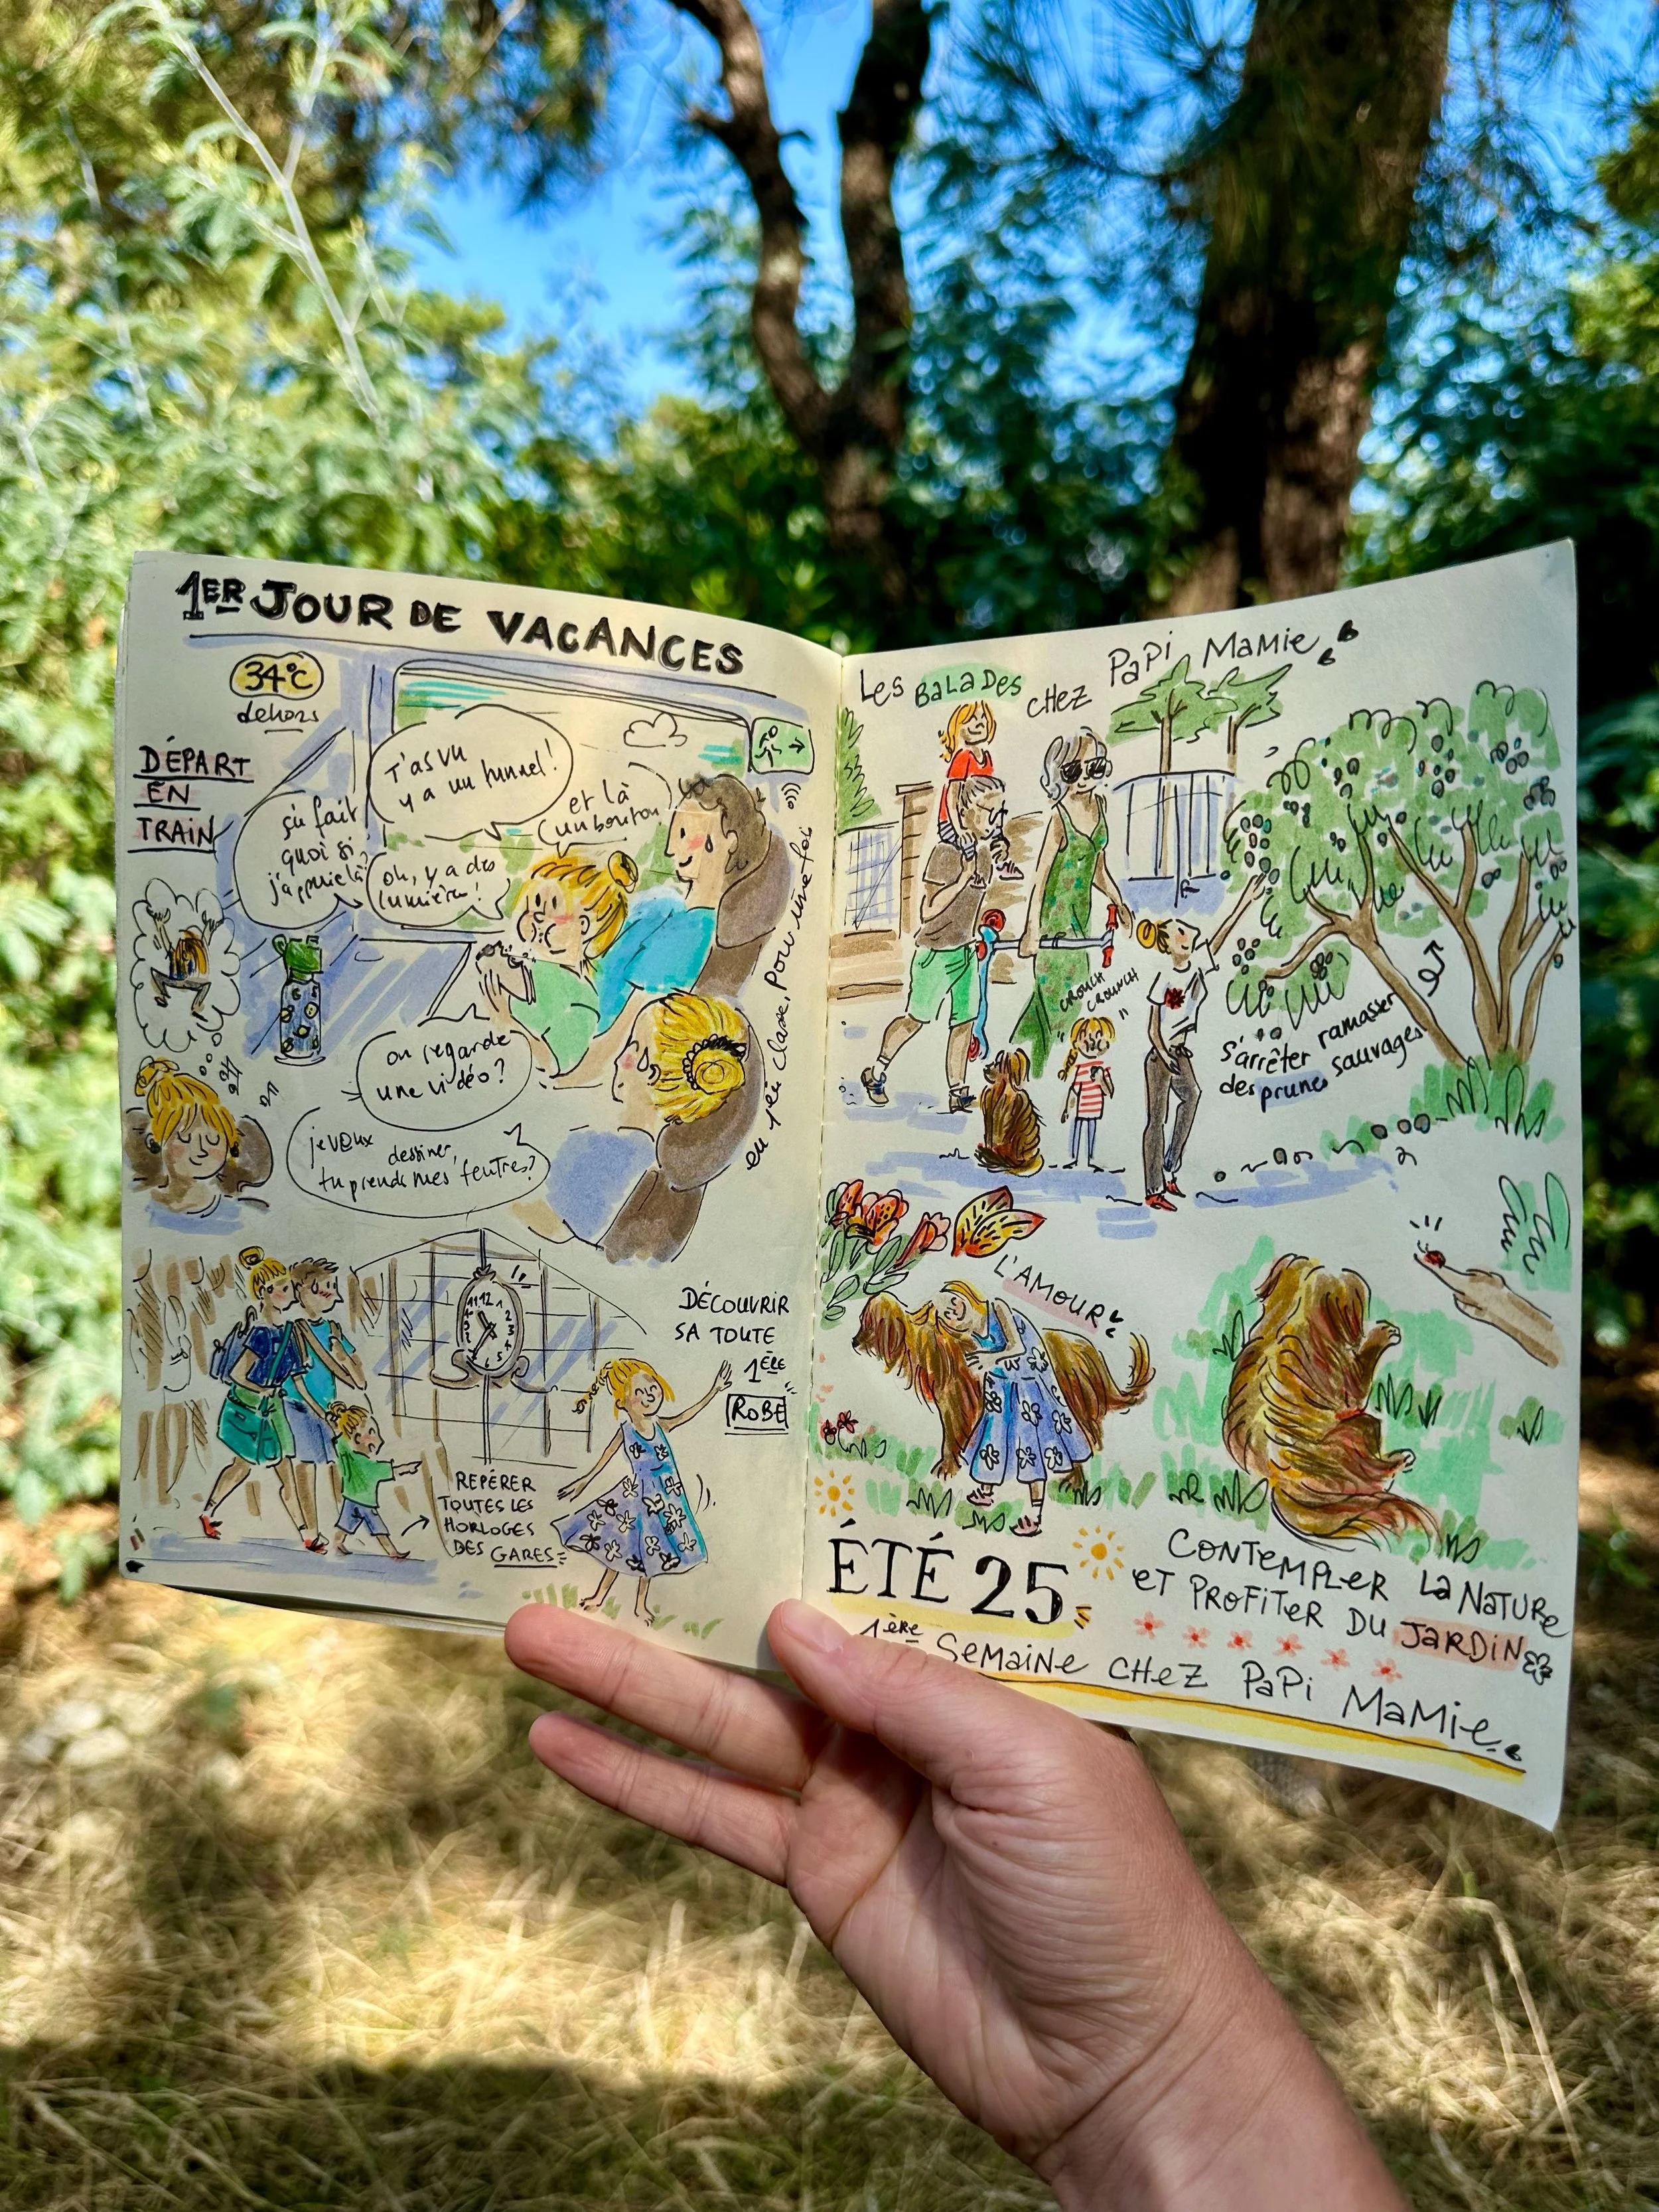 1ER JOUR DE VACANCES
34°C
dehors
DÉPART
EN
TRAIN
T'as vu
y a un tunnel!
et là
un bouton
ça fait
quoi si
j'appuie là?
oh, y a des
lumières!
on regarde
une vidéo?
je veux dessiner,
tu prends mes feutres?
en 1ère classe, pour une fois
12
REPÉRER
TOUTES LES
HORLOGES
DES GARES
DÉCOUVRIR
SA TOUTE
1ÈRE
ROBE
Les BaLaDes CHEZ PaPi MaMie
CROUCH
CROUNCH
s'arrêter ramasser
des prunes sauvages
L'AMOUR
CONTEMPLER La NaTURe
eT PROFiTeR DU JaRDiN
ÉTÉ 25
1ère SeMaiNe CHeZ PaPi MaMie